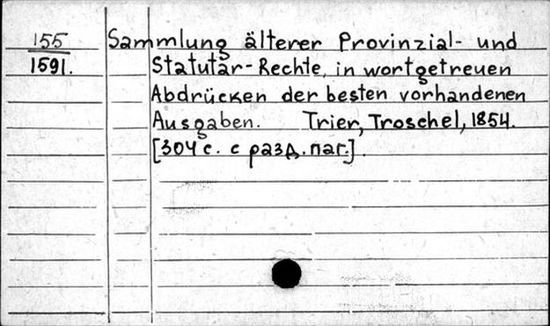 155 Sammlung älterer Provinzial- und
1591. Statutar-Rechte, in wortgetreuen
Abdrücken der besten vorhandenen
Ausgaben. Trier, Troschel, 1854.
[304 с. с разд. паг.].